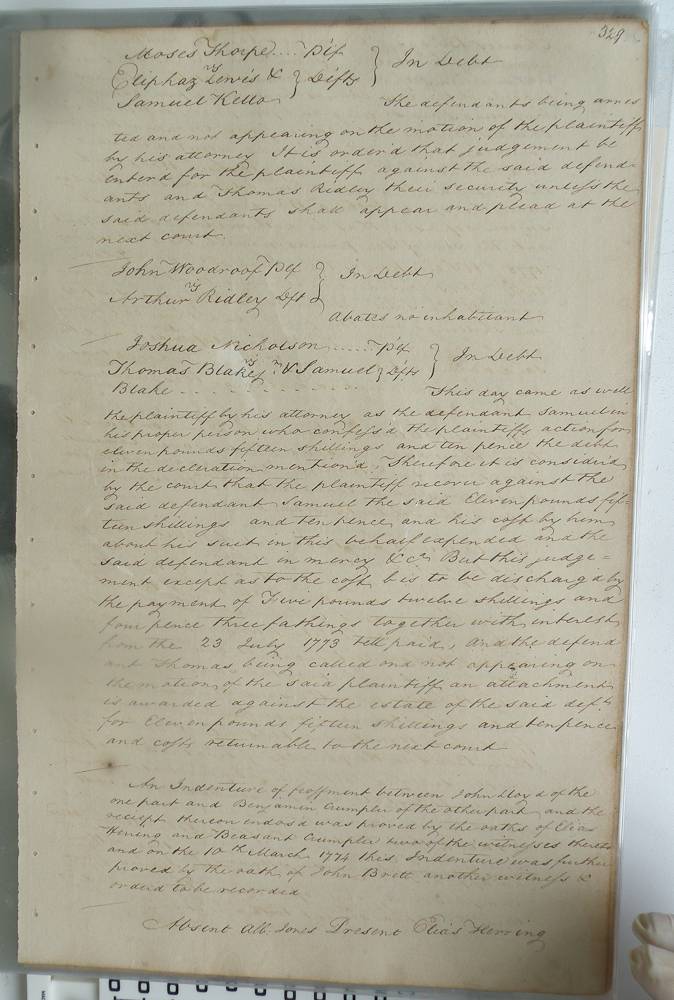 329
Moses Thorpe .... Plf } In Debt
vs
Eliphaz Lewis & } Defts
Samuel Kello
The defendants being arres
ted and not appearing on the motion of the plaintiff
by his attorney It is order'd that judgement be
enterd for the plaintiff against the said defend-
ants and Thomas Ridley their security unless the
said defendants shall appear and plead at the
next court
John Woodroof Plf } In Debt
vs
Arthur Ridley Dft
Abates no inhabitant
Joshua Nicholson ...... Plf } In Debt
vs
Thomas Blake & Samuel } Defts
Blake - - - - - - - - - -
This day came as well
the plaintiff by his attorney as the defendant Samuel in
his proper person who confess'd the plaintiffs action for
eleven pounds fifteen shillings and ten pence the debt
in the decleration mention'd, Therefore it is consider'd
by the court that the plaintiff recover against the
said defendant Samuel the said Eleven pounds fif-
teen shillings and ten pence and his cost by him
about his suit in this behalf expended and the
said defendant in mercy &c. But this judge=
ment except as to the cost is to be discharg'd by
the payment of Five pounds twelve shillings and
four pence three fathings together with interest
from the 23 July 1773 till paid, and the defend
ant Thomas being called and not appearing on
the motion of the said plaintiff an attachment
is awarded against the estate of the said deft
for Eleven pounds fifteen shillings and ten pence
and costs returnable to the next court
An Indenture of feoffment between John Lloyd of the
one part and Benjamin Crumpler of the other part and the
receipt thereon endosd was proved by the oaths of Elias
Herring and Beasant Crumpler two of the witnesses thereto
and on the 10th March 1774 this Indenture was further
proved by the oath of John Brett another witness &
orderd to be recorded
Absent Alb. Jones Present Elias Herring